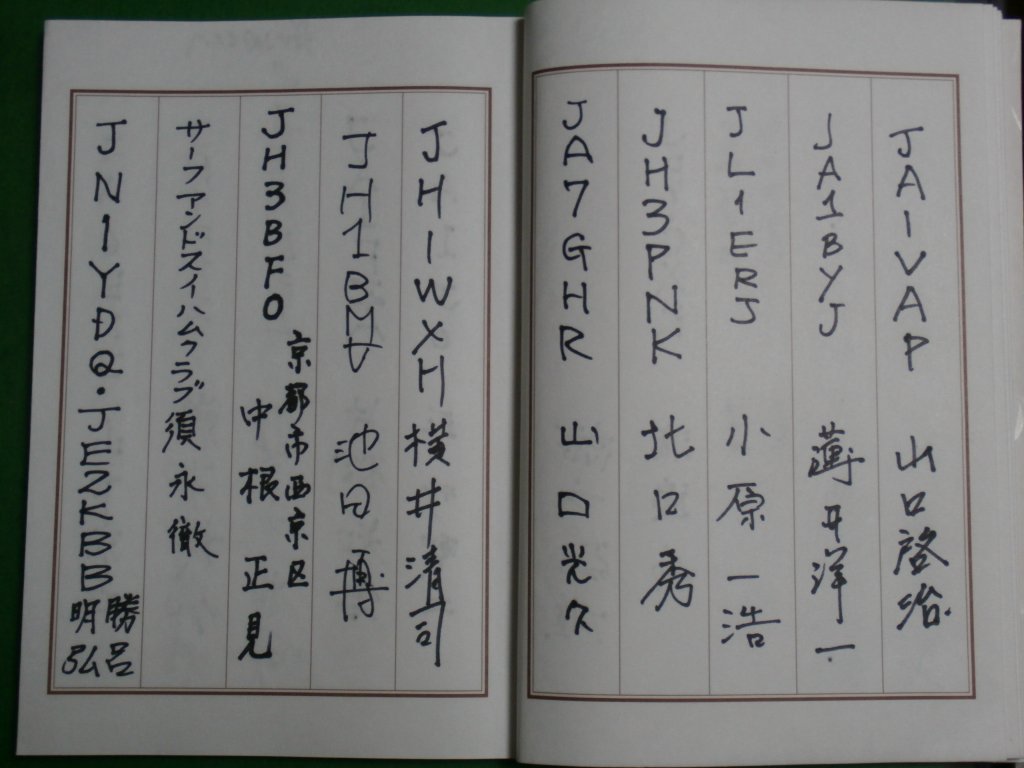 JA1VAP 山口啓治
JA1BYJ 薄井洋一
JL1ERJ 小原一浩
JH3PNK 北口秀
JA7GHR 山口光久
JH1WXH 横井清司
JH1BMU 池田博
JH3BFO 京都市西京区
中根正見
サーフアンドスイハムクラブ 須永徹
JN1YDQ・JE2KBB 勝呂
明弘